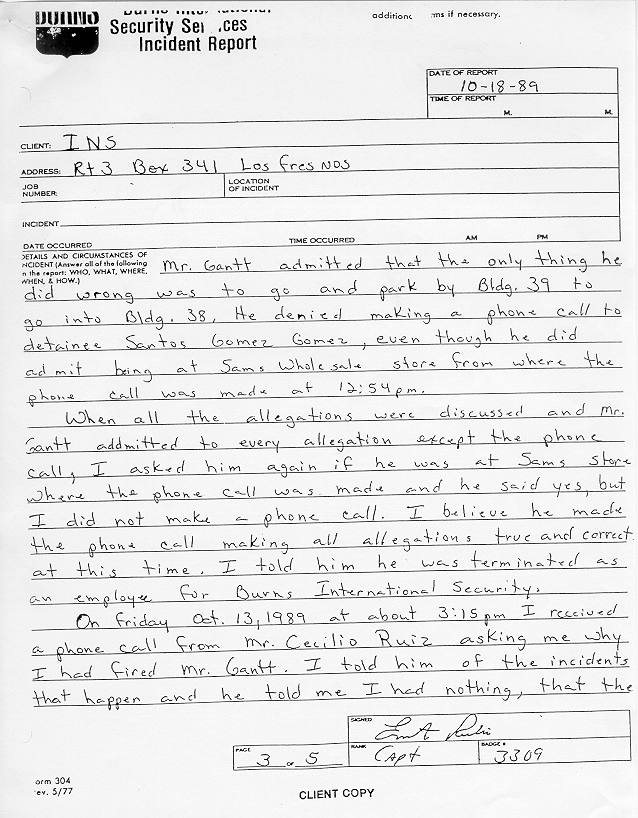 BURNS
Burns International
Security Services
Incident Report
additional if necessary.
DATE OF REPORT
10-18-89
TIME OF REPORT
M. M.
CLIENT: INS
ADDRESS: Rt 3 Box 341 Los Fresnos
JOB NUMBER:
LOCATION OF INCIDENT
INCIDENT
DATE OCCURRED TIME OCCURRED AM PM
DETAILS AND CIRCUMSTANCES OF
INCIDENT (Answer all of the following
in the report: WHO, WHAT, WHERE,
WHEN, & HOW.)
Mr. Gantt admitted that the only thing he
did wrong was to go and park by Bldg. 39 to
go into Bldg. 38. He denied making a phone call to
detainee Santos Gomez Gomez, even though he did
admit being at Sams Wholesale store from where the
phone call was made at 12:54pm.
When all the allegations were discussed and Mr.
Gantt addmitted to every allegation except the phone
call, I asked him again if he was at Sams Store
where the phone call was made and he said yes, but
I did not make a phone call. I believe he made
the phone call making all allegations true and correct
at this time. I told him he was terminated as
an employee for Burns International Security.
On Friday Oct. 13, 1989 at about 3:15pm I received
a phone call from Mr. Cecilio Ruiz asking me why
I had fired Mr. Gantt. I told him of the incidents
that happen and he told me I had nothing, that the
SIGNED
PAGE 3 of 5
RANK Capt
BADGE # 3309
orm 304
ev. 5/77
CLIENT COPY